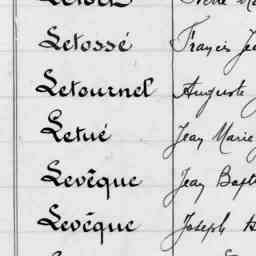 Letossé Francis
Letournel Auguste
Letué Jean Marie
Levêque Jean
Levêque Joseph